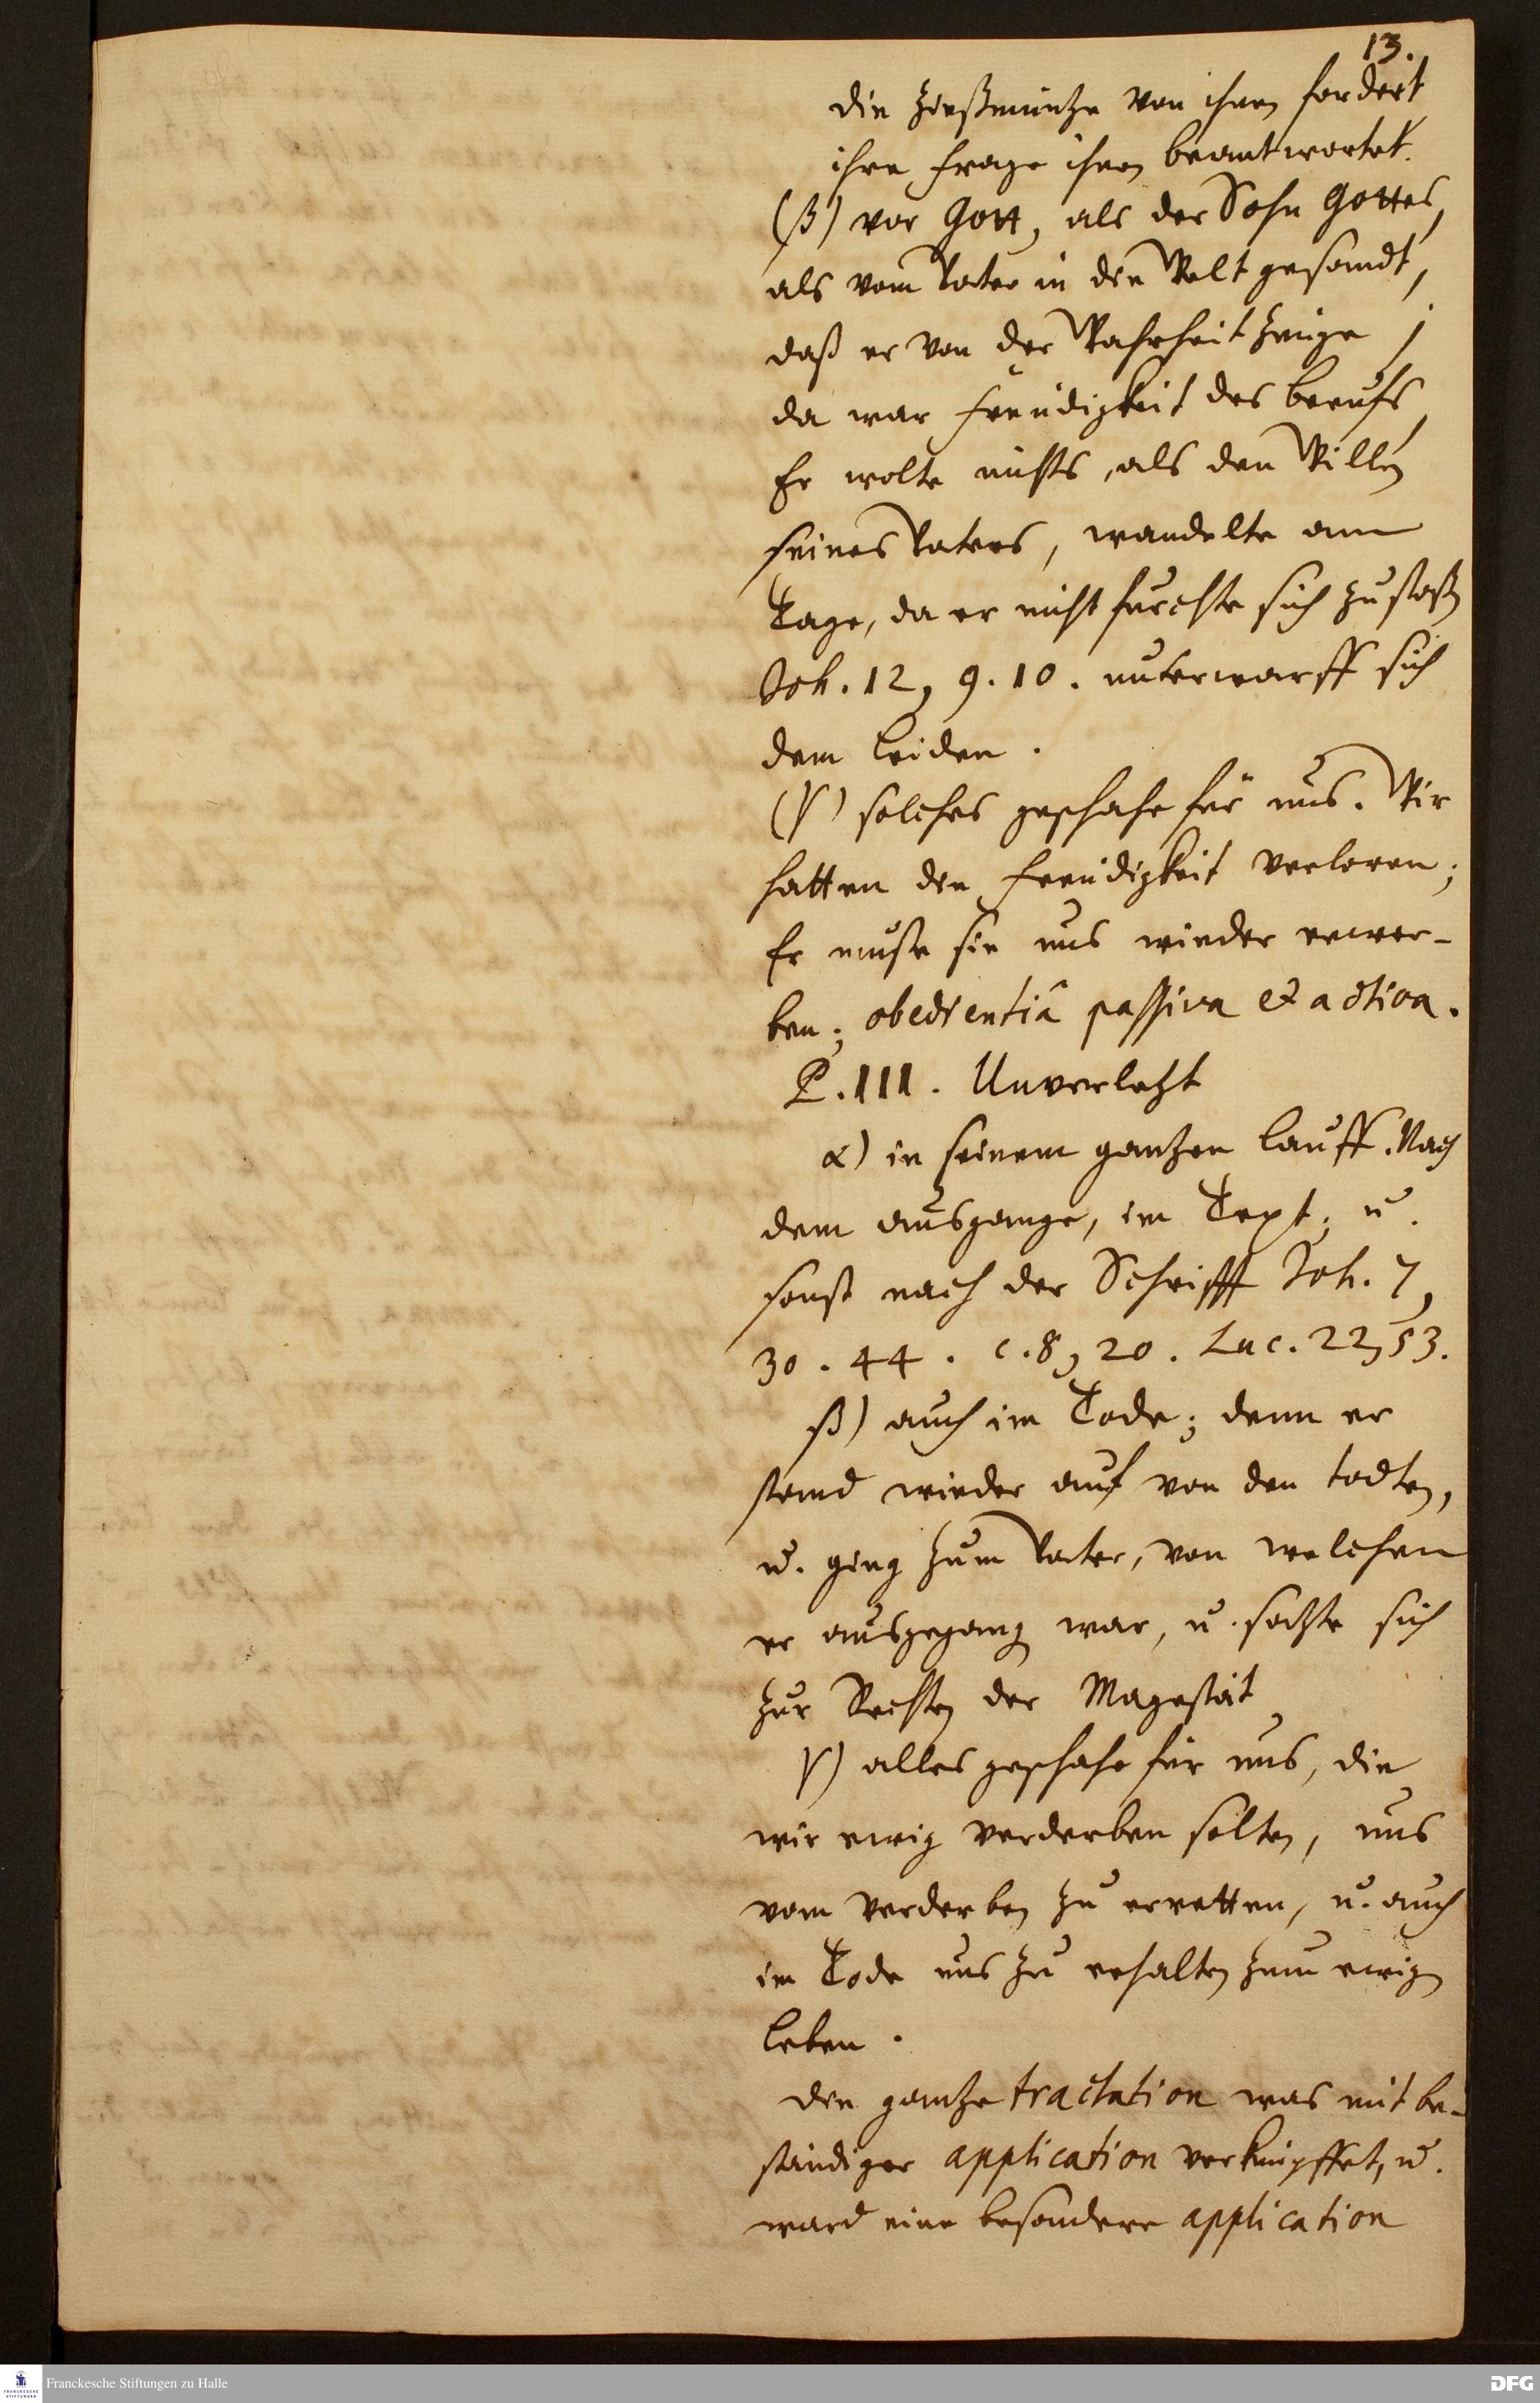 13.
die Zinßmüntze von ihnen fordert
ihre Frage ihnen beantwortet.
(β) vor Gott, als der Sohn Gottes,
als vom Vater in die Welt gesandt,
daß er von der Wahrheit zeüge;
da war Freüdigkeit des berufs,
Er wolte nichts, als den Willen
seines Vaters, wandelte am
Tage, da er nicht furchte sich zustoßen
Joh. 12, 9. 10. unterwarff sich
dem leiden.
(γ) solches geschahe für uns. Wir
hatten die Freüdigkeit verloren;
Er muste sie uns wieder erwer-
ben; obedientiâ passiva et activa.
P. III. Unverletzt
α) in seinem gantzen lauff. Nach
dem ausgange, im Text; u.
sonst nach der Schrifft Joh. 7,
30. 44. c. 8, 20. Luc. 22, 53.
β) auch im Tode; denn er
stand wieder auf von den todten,
u. ging zum Vater, von welchem
er ausgegangen war, u. satzte sich
zur Rechten der Magestät
γ) alles geschahe für uns, die
wir ewig verderben solten, uns
vom verderben zu erretten, u. auch
im Tode uns zu erhalten zum ewigen
leben.
die gantze tractation war mit be-
ständiger application verknüpffet, u.
ward eine besondere application
Franckesche Stiftungen zu Halle
FRANCKESCHE
STIFTUNGEN
DFG